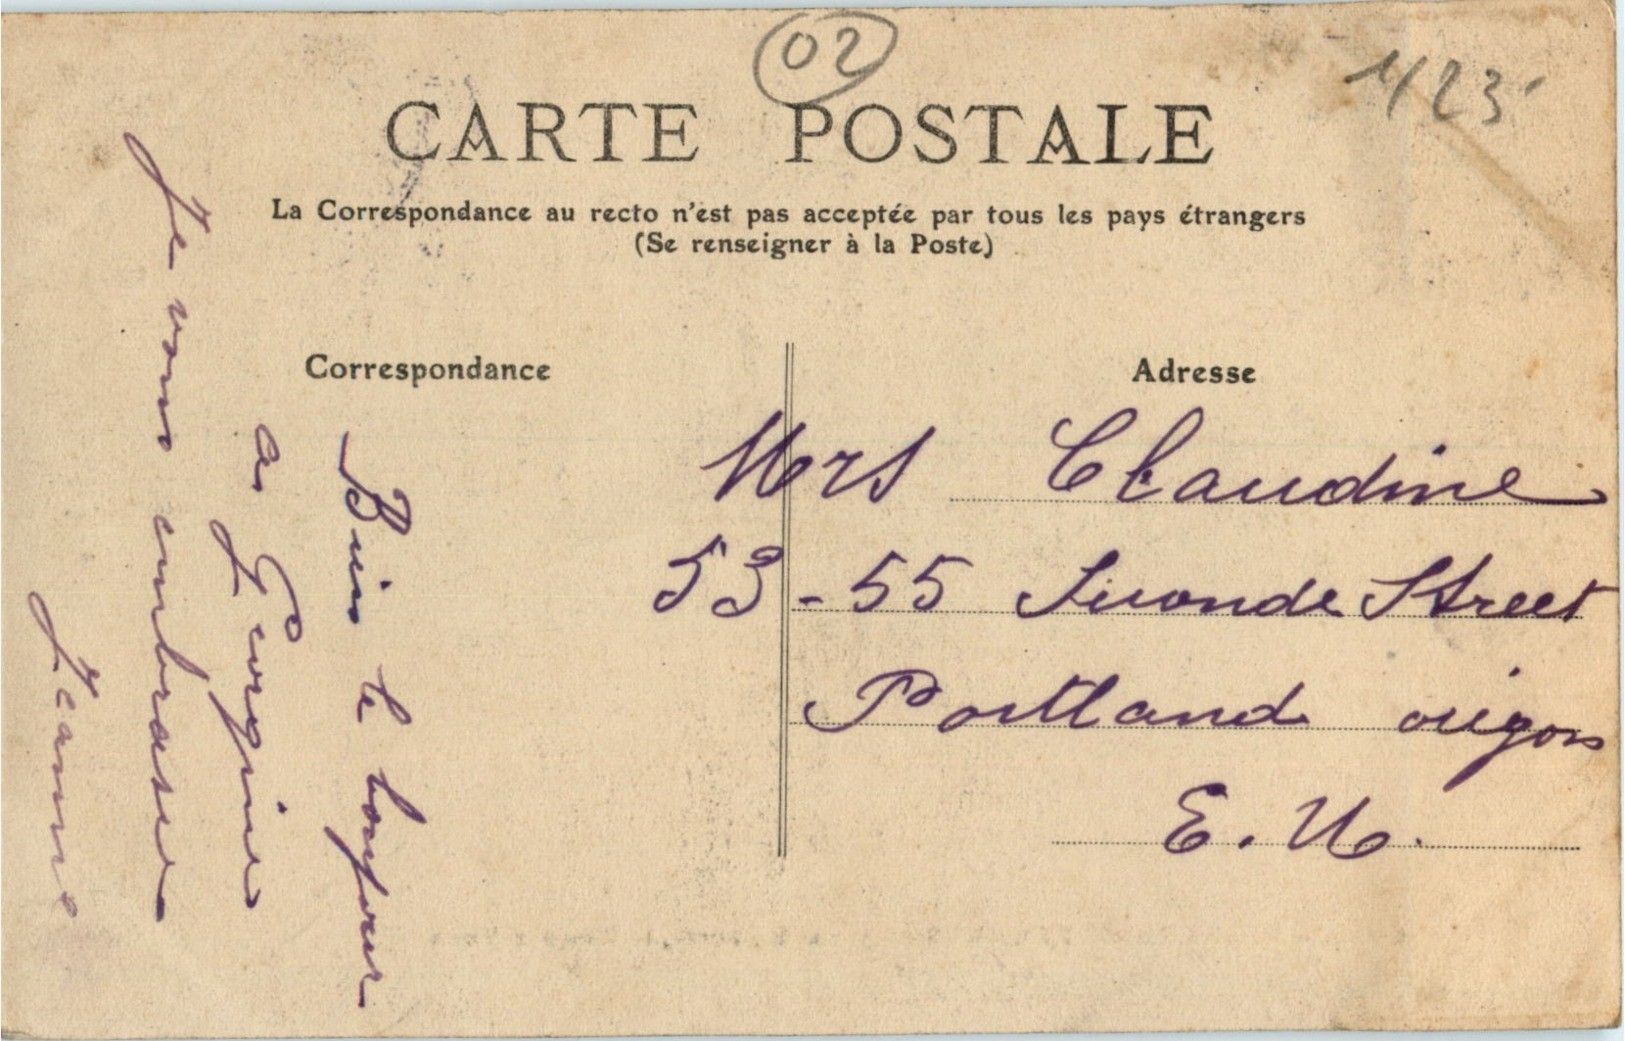 02
1/23
CARTE POSTALE
La Correspondance au recto n'est pas acceptée par tous les pays étrangers
(Se renseigner à la Poste)
Correspondance
Bien le bonjour
a Georgine
Je vous embrasse
Jeanne
Adresse
Mrs Claudine
53-55 Seconde Street
Portland origon
E. U.